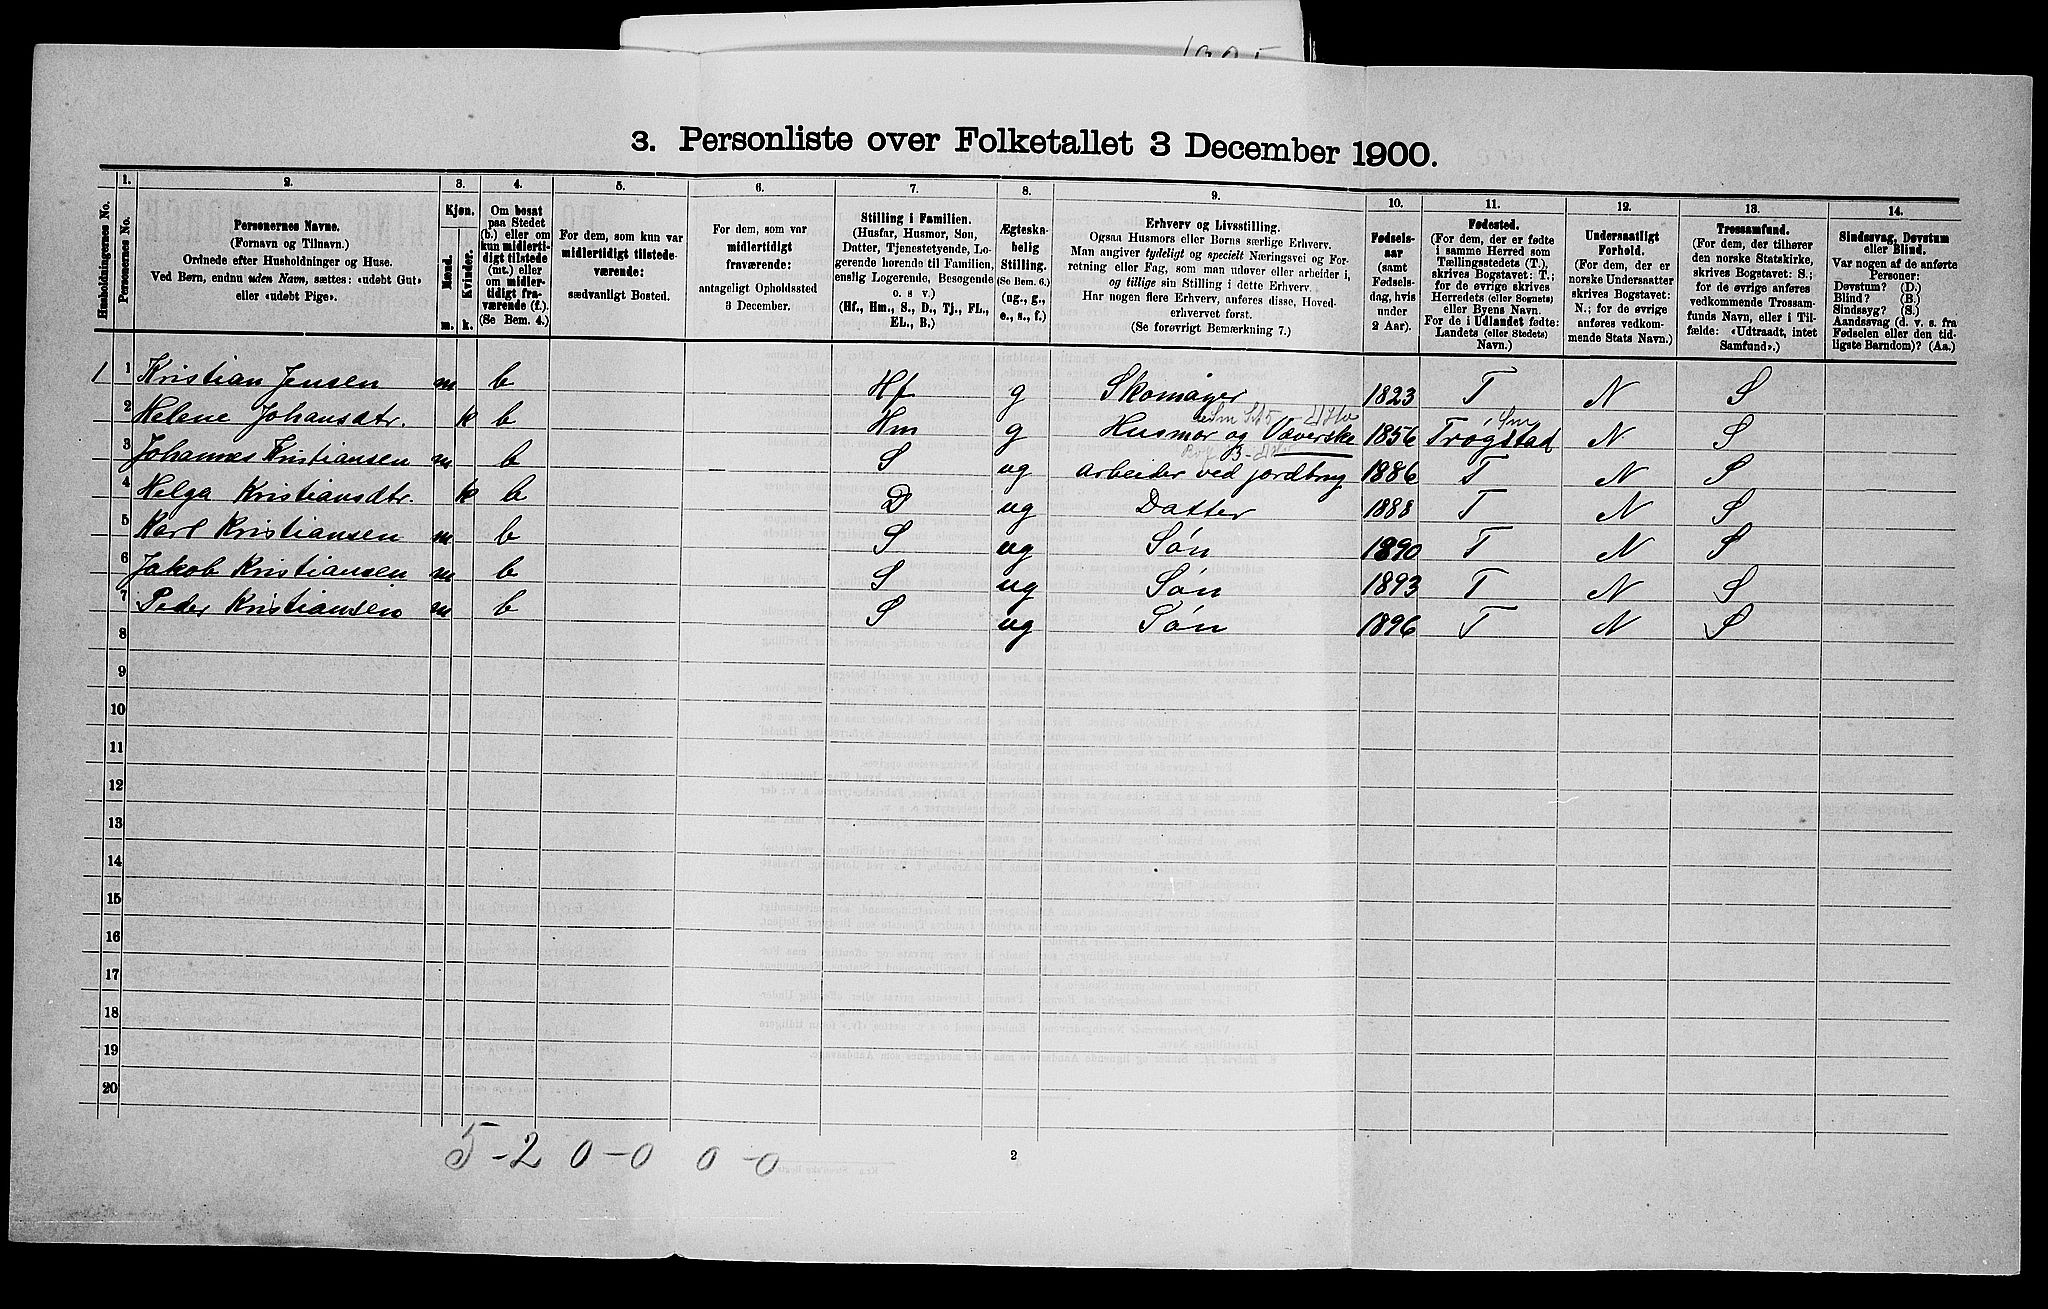 3. Personliste over Folketallet 3 December 1900.
1. 2. 3. 4. 5. 6. 7. 8. 9. 10. 11. 12. 13. 14.
Husholdningernes No.
Personernes No.
Personernes Navne.
(Fornavn og Tilnavn.)
Ordnede efter Husholdninger og Huse.
Ved Børn, endnu uden Navn, sættes: «udøbt Gut»
eller «udøbt Pige».
Kjøn.
Mænd.
Kvinder.
m. k.
Om bosat
paa Stedet
(b.) eller om
kun midlerti-
digt tilstede
(mt.) eller
om midler-
tidigt fra-
værende (f.).
(Se Bem. 4.)
For dem, som kun var
midlertidigt tilstede-
værende:
sædvanligt Bosted.
For dem, som var
midlertidigt
fraværende:
antageligt Opholdssted
3 December.
Stilling i Familien.
(Husfar, Husmor, Søn,
Datter, Tjenestetyende, Lo-
gerende hørende til Familien,
enslig Logerende, Besøgende
o. s v.)
(Hf., Hm., S., D., Tj., FL.,
EL., B.)
Ægteska-
belig
Stilling.
(Se Bem. 6.)
(ug., g.,
e., s., f.)
Erhverv og Livsstilling.
Ogsaa Husmors eller Børns særlige Erhverv.
Man angiver tydeligt og specielt Næringsvei og For-
retning eller Fag, som man udøver eller arbeider i,
og tillige sin Stilling i dette Erhverv.
Har nogen flere Erhverv, anføres disse, Hoved-
erhvervet først.
(Se forøvrigt Bemærkning 7.)
Fødsels-
aar
(samt
Fødsels-
dag, hvis
under
2 Aar).
Fødested.
(For dem, der er fødte
i samme Herred som
Tællingsstedets (T.),
skrives Bogstavet: T.;
for de øvrige skrives
Herredets (eller Sognets)
eller Byens Navn.
For de i Udlandet fødte:
Landets (eller Stedets)
Navn.)
Undersaatligt
Forhold.
(For dem, der er
norske Undersaatter
skrives Bogstavet:
N.; for de øvrige
anføres vedkom-
mende Stats Navn.)
Trossamfund.
(For dem, der tilhører
den norske Statskirke,
skrives Bogstavet: S.;
for de øvrige anføres
vedkommende Trossam-
funds Navn, eller i Til-
fælde: «Udtraadt, intet
Samfund».)
Sindssvag, Døvstum
eller Blind.
Var nogen af de anførte
Personer:
Døvstum? (D.)
Blind? (B.)
Sindssyg? (S.)
Aandssvag (d. v. s. fra
Fødselen eller den tid-
ligste Barndom)? (Aa.)
1 1 Kristian Jensen m b Hf g Skomager 1823 T N S
2 Helene Johansdtr. k b Hm g Husmor og Væverske 1856 Trøgstad N S
3 Johannes Kristiansen m b S ug arbeider ved jordbrug 1886 T N S
4 Helga Kristiansdtr. k b D ug Datter 1888 T N S
5 Karl Kristiansen m b S ug Søn 1890 T N S
6 Jakob Kristiansen m b S ug Søn 1893 T N S
7 Peder Kristiansen m b S ug Søn 1896 T N S
8
9
10
11
12
13
14
15
16
17
18
19
20
5-2 0-0 0-0
2